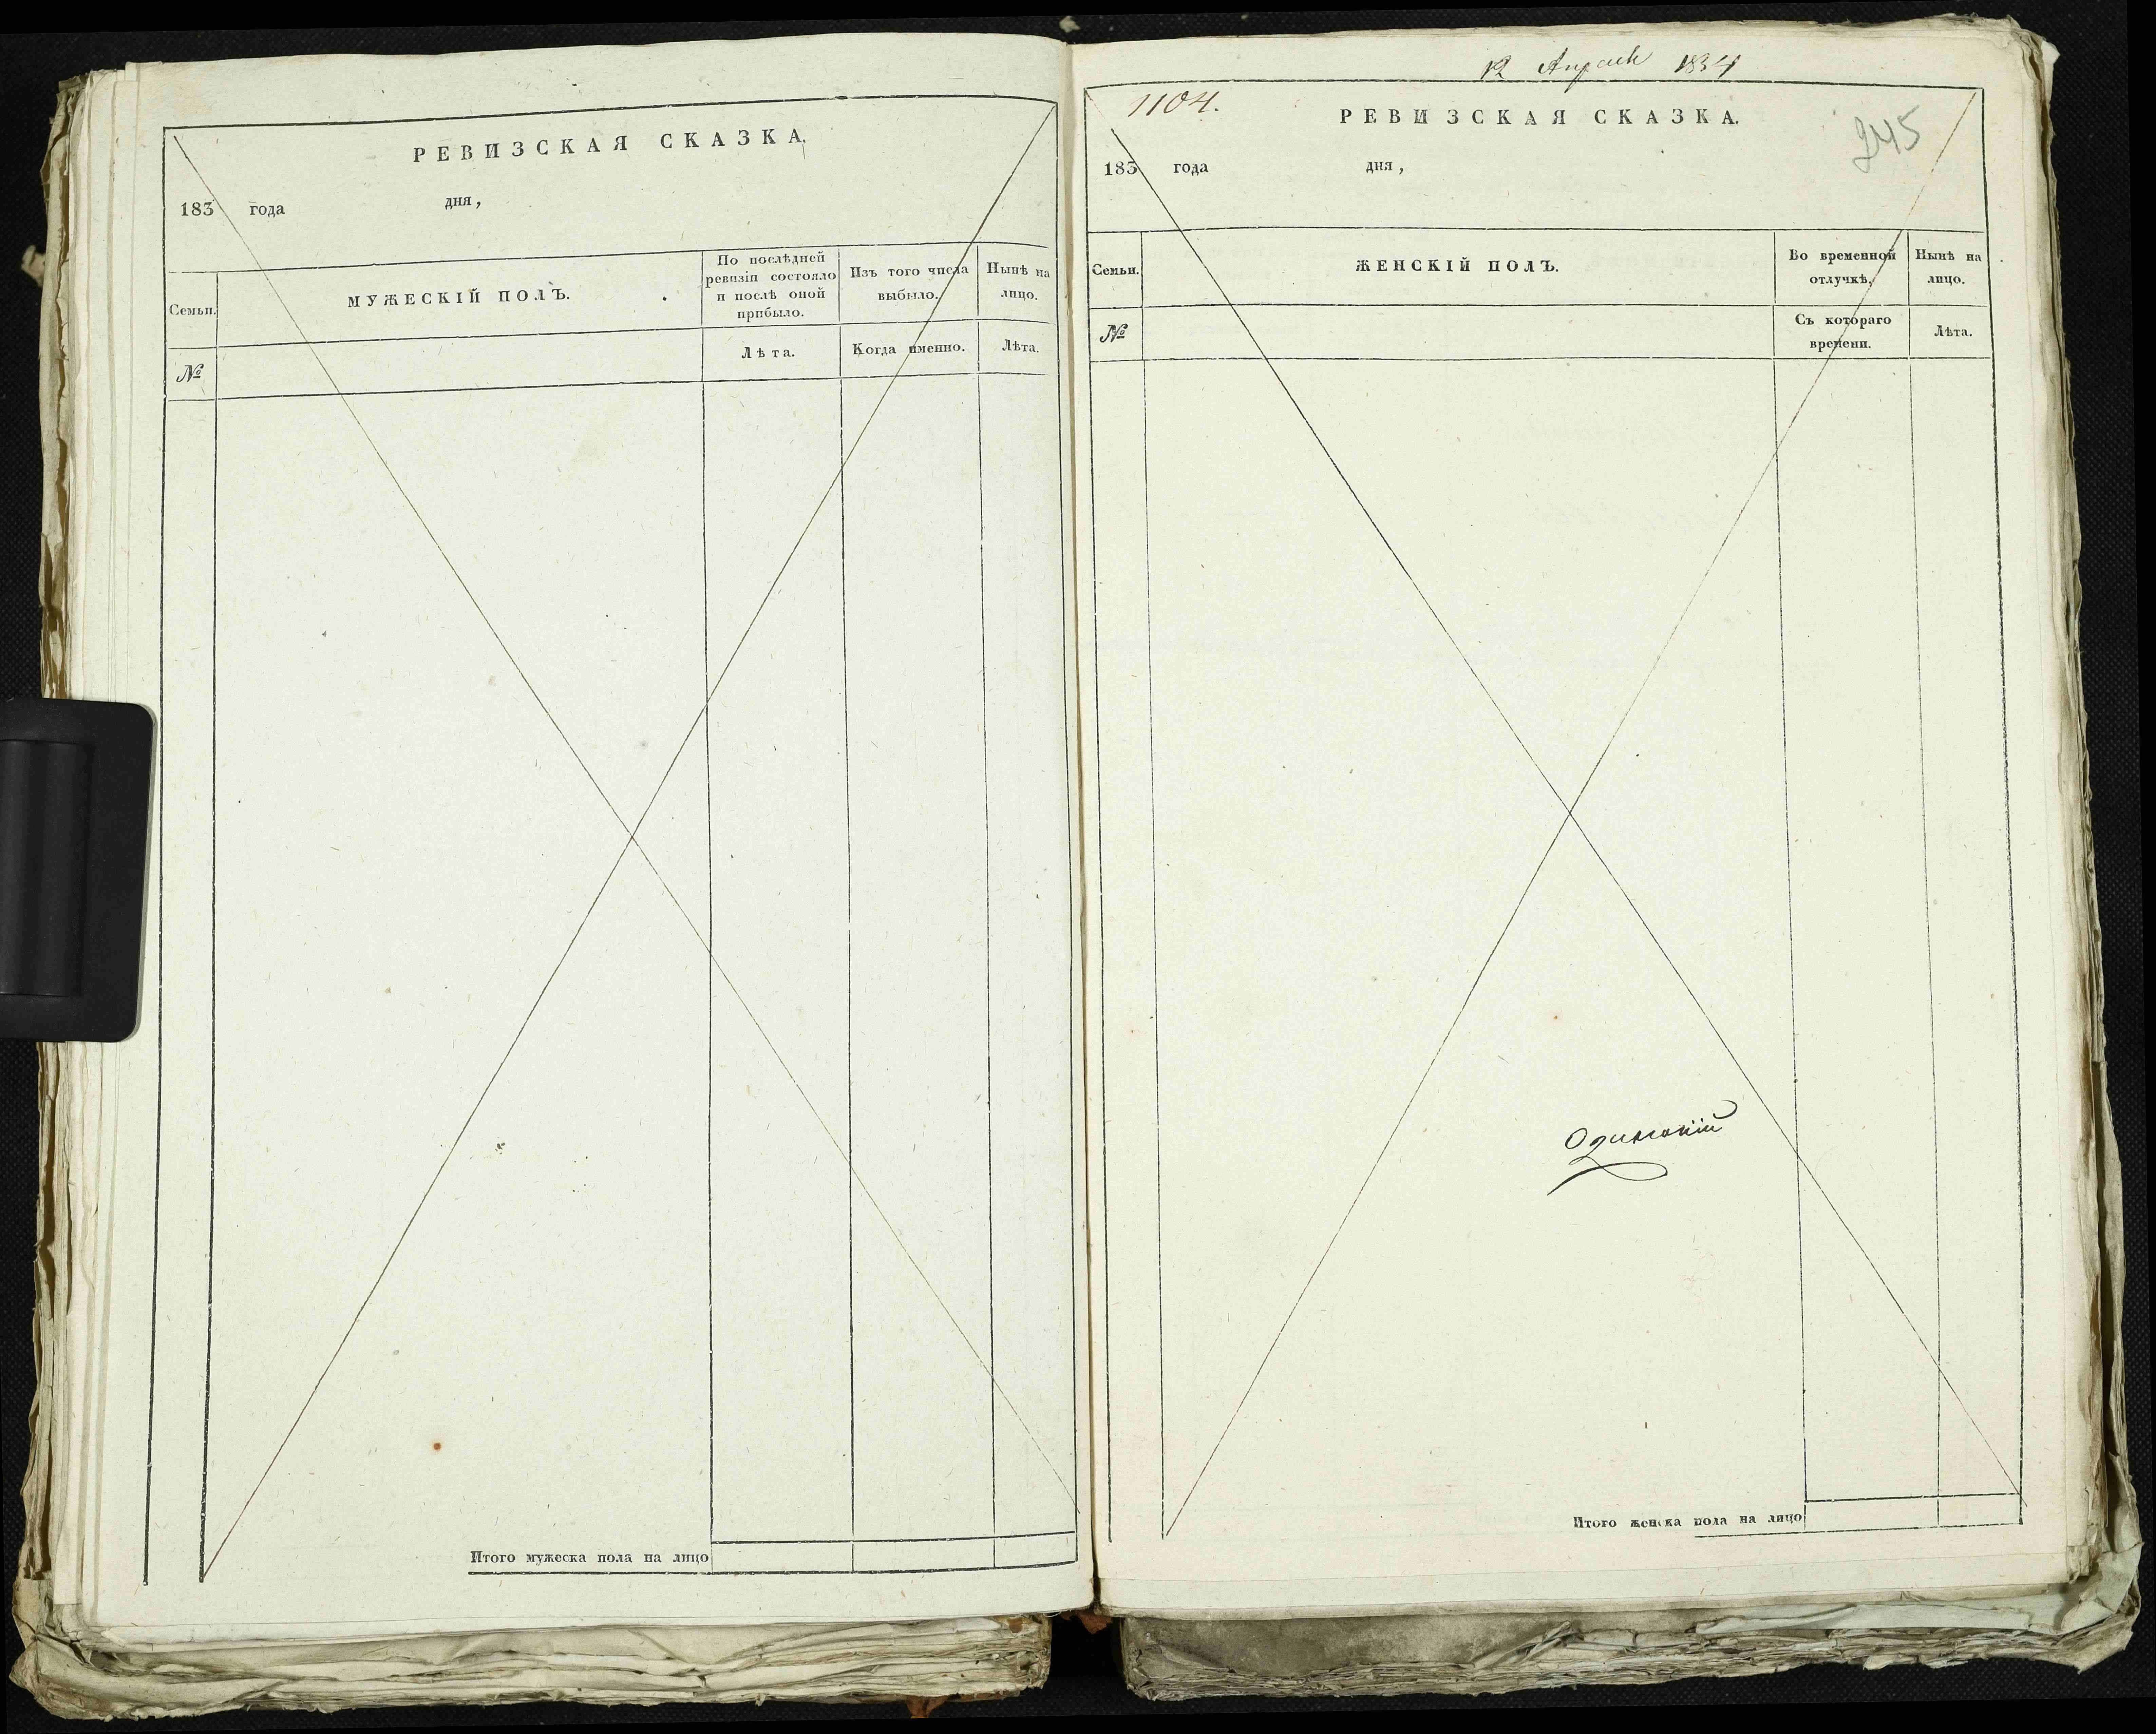 РЕВИЗСКАЯ СКАЗКА.
183 года дня,
Семьи.
МУЖЕСКІЙ ПОЛЪ.
По послѣдней
ревизіи состояло
и послѣ оной
прибыло.
Изъ того числа
выбыло.
Нынѣ на
лицо.
№
Лѣта.
Когда именно.
Лѣта.
Итого мужеска пола на лицо
12 Апреля 1834
1104.
РЕВИЗСКАЯ СКАЗКА.
245
183 года дня,
Семьи.
ЖЕНСКІЙ ПОЛЪ.
Во временной
отлучкѣ,
Нынѣ на
лицо.
№
Съ котораго
времени.
Лѣта.
Итого женска пола на лицо